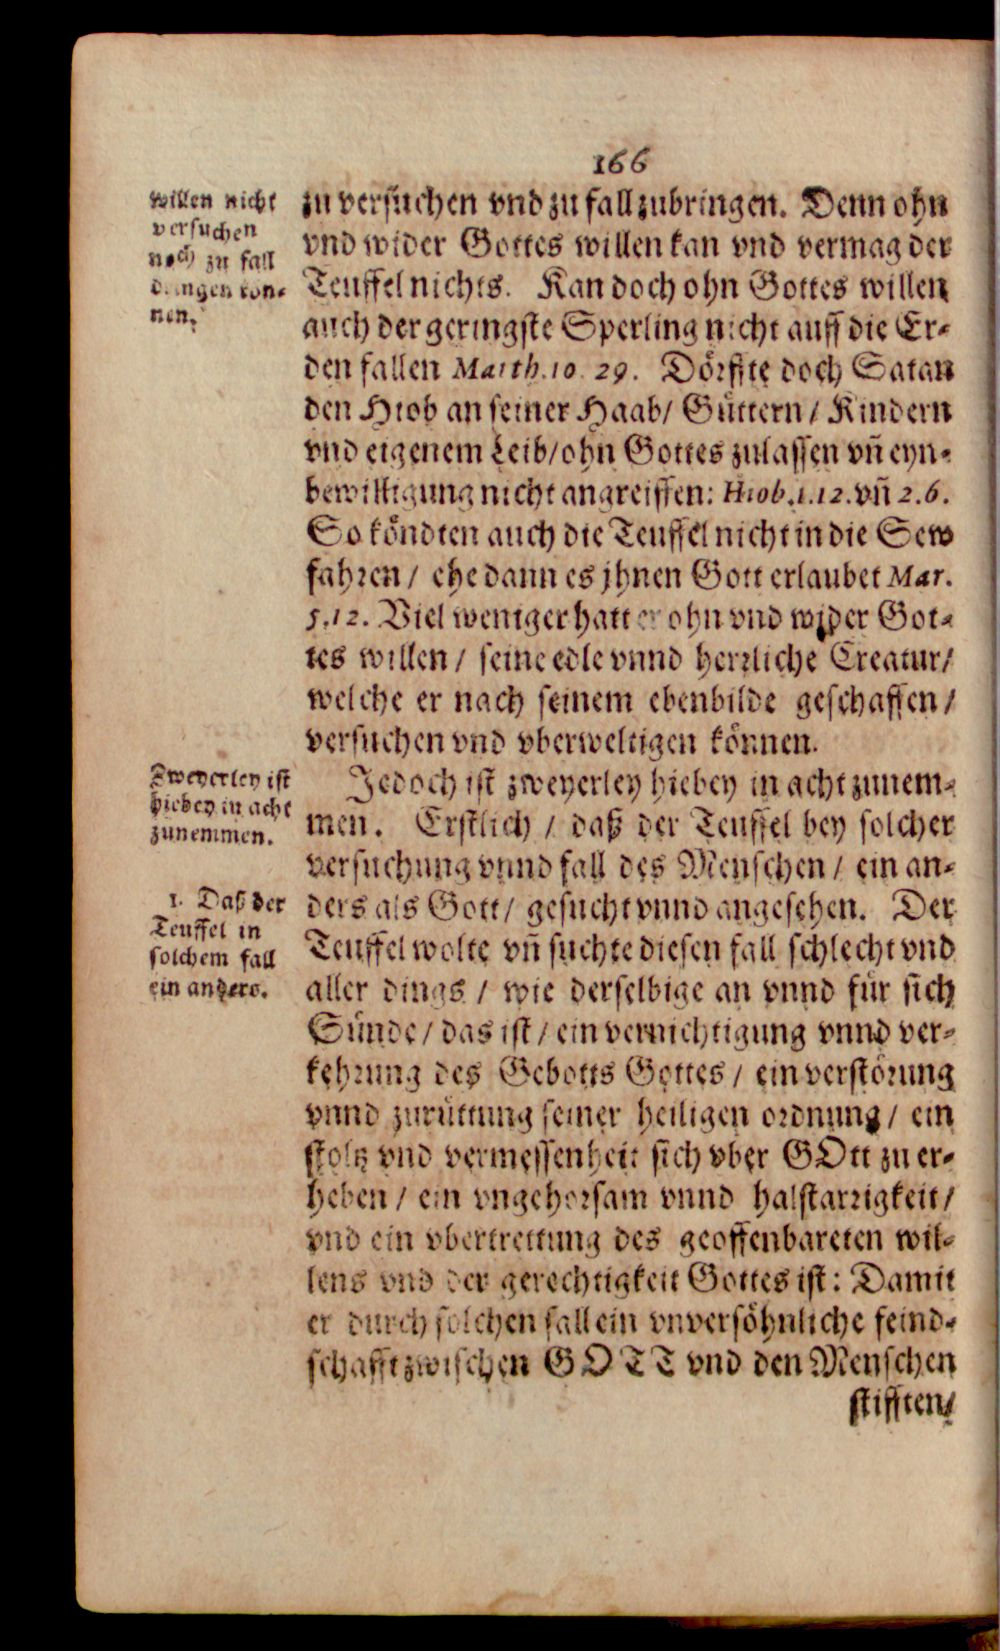 166
willen nicht
versuchen
noch zu fall
dringen kön-
nen.
zu versuchen vnd zu fall zubringen. Denn ohn
vnd wider Gottes willen kan vnd vermag der
Teuffel nichts. Kan doch ohn Gottes willen
auch der geringste Sperling nicht auff die Er-
den fallen Matth. 10. 29. Dörffte doch Satan
den Hiob an seiner Haab/ Güttern/ Kindern
vnd eigenem Leib/ ohn Gottes zulassen vñ eyn-
bewilligung nicht angreiffen: Hiob. 1. 12. vñ 2. 6.
So köndten auch die Teuffel nicht in die Sew
fahren/ ehe dann es jhnen Gott erlaubet Mar.
5. 12. Viel weniger hatt er ohn vnd wider Got-
tes willen/ seine edle vnnd herrliche Creatur/
welche er nach seinem ebenbilde geschaffen/
versuchen vnd vberweltigen können.
Zweyerley ist
hiebey in acht
zunemmen.
Jedoch ist zweyerley hiebey in acht zunem-
men. Erstlich/ daß der Teuffel bey solcher
versuchung vnnd fall des Menschen/ ein an-
1. Daß der
Teuffel in
solchem fall
ein anders.
ders als Gott/ gesucht vnnd angesehen. Der
Teuffel wolte vñ suchte diesen fall schlecht vnd
aller dings/ wie derselbige an vnnd für sich
Sünde/ das ist/ ein vernichtigung vnnd ver-
kehrung des Gebotts Gottes/ ein verstörung
vnnd zurüttung seiner heiligen ordnung/ ein
stoltz vnd vermessenheit sich vber GOtt zu er-
heben/ ein vngehorsam vnnd halstarrigkeit/
vnd ein vbertrettung des geoffenbareten wil-
lens vnd der gerechtigkeit Gottes ist: Damit
er durch solchen fall ein vnversöhnliche feind-
schafft zwischen GOTT vnd den Menschen
stifften/